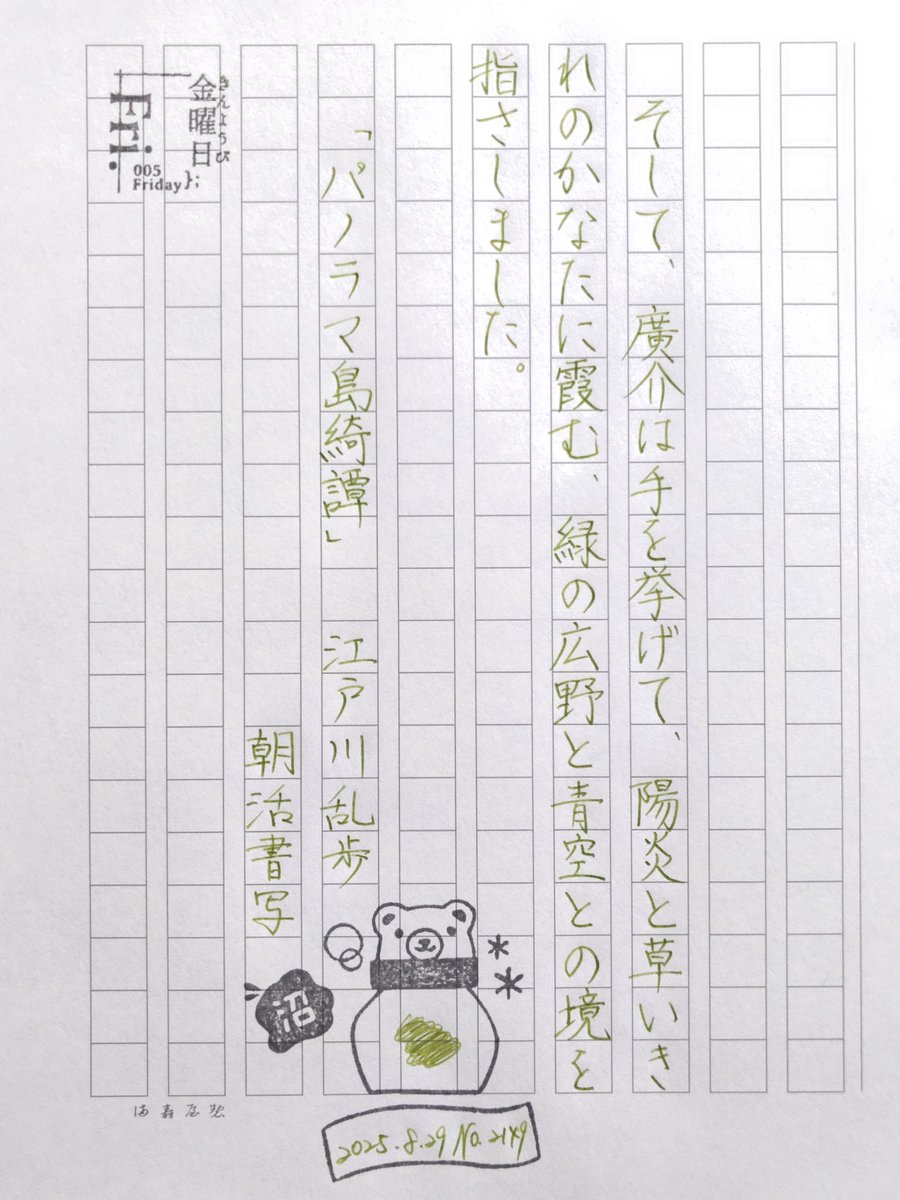 そして、廣介は手を挙げて、陽炎と草いき
れのかなたに霞む、緑の広野と青空との境を
指さしました。
「パノラマ島綺譚」　江戸川乱歩
朝活書写
金曜日
きんようび
Fri.
005
Friday};
沼
2025.8.29 No.2149